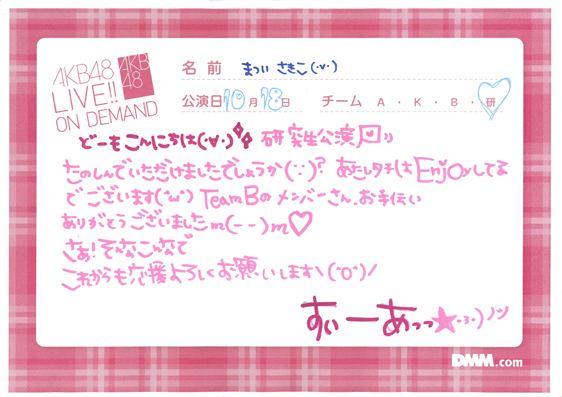 AKB48
LIVE!!
ON DEMAND
AKB
48
名前 まつい さきこ(・v・)
公演日 10月 18日 チーム A・K・B・研
どーもこんにちは(・∀・) 研究生公演
たのしんでいただけましたでしょうか(・:・)? あたしタチはEnjoyしてる
でございます('ω') Team Bのメンバーさん、お手伝い
ありがとうございましたm(--)m♡
さぁ!そんなこんなで
これからも応援よろしくお願いします\(^o^)/
すぃーあっっ★・3・)ノシ
DMM.com